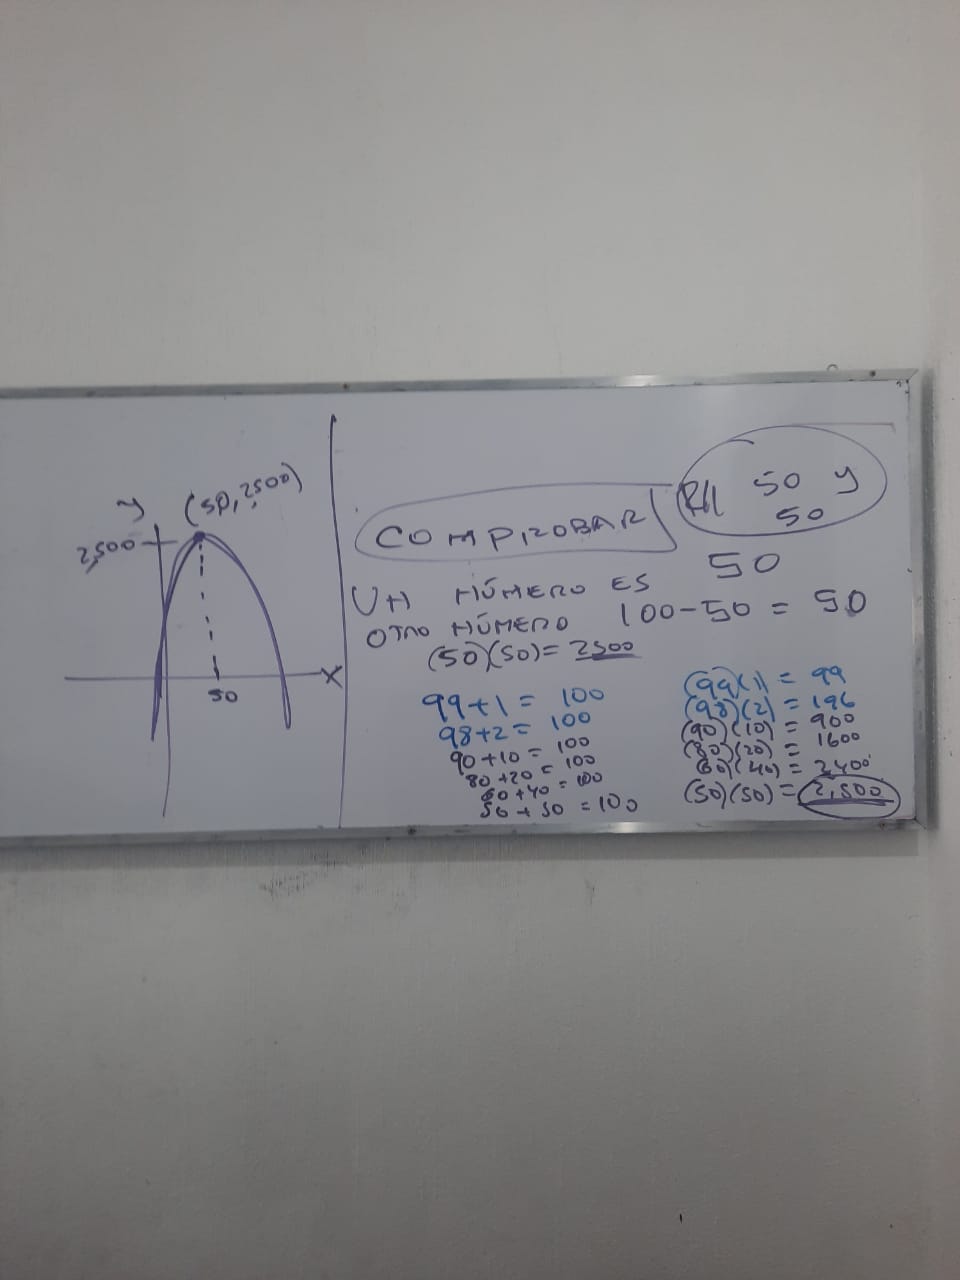 y
(50, 2500)
2,500
50
x
COMPROBAR
R// 50 y
50
UN NÚMERO ES 50
OTRO NÚMERO 100-50 = 50
(50)(50)= 2500
99+1 = 100
98+2 = 100
90+10 = 100
80+20 = 100
60+40 = 100
50+50 = 100
(99)(1) = 99
(98)(2) = 196
(90)(10) = 900
(80)(20) = 1600
60)(40) = 2400
(50)(50) = 2,500